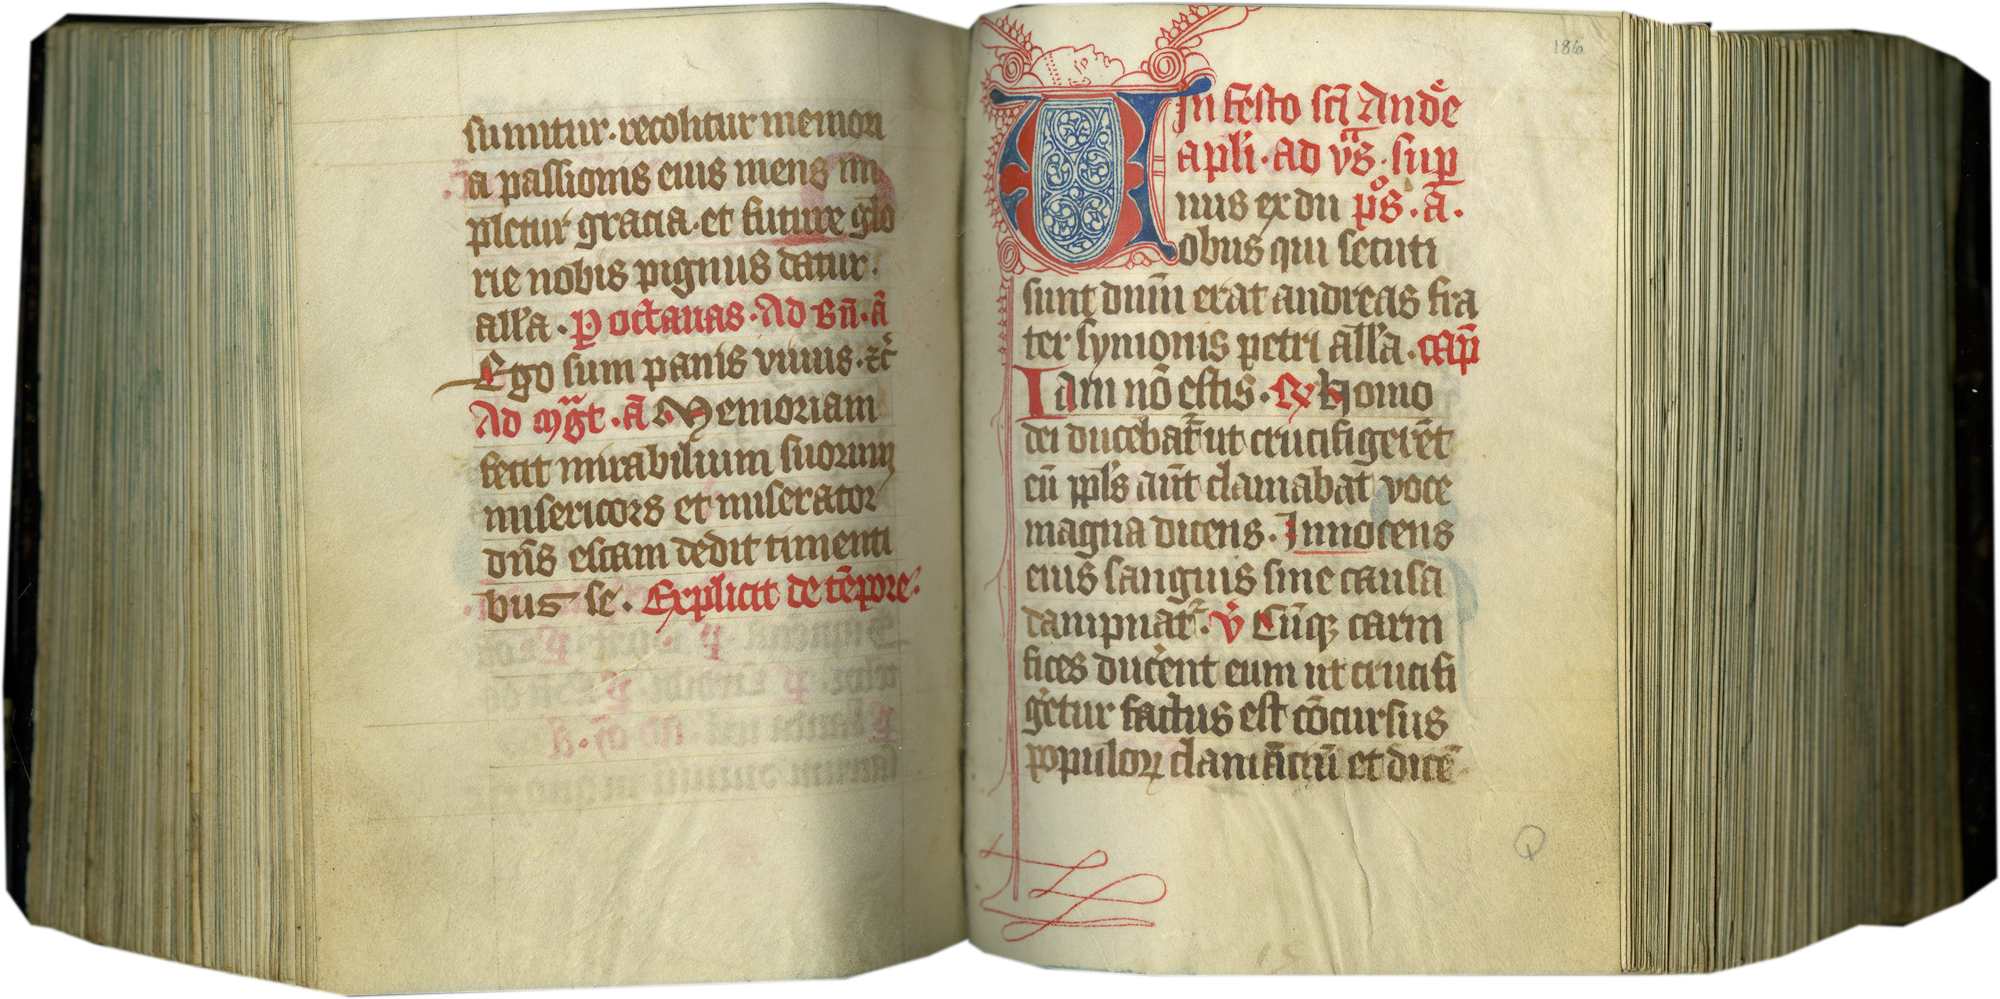 sumitur. recolitur memori
a passionis eius mens im
pletur gracia. et future glo
rie nobis pignus datur.
all'a. P octauas. Ad Bn̄. a̅
Ego sum panis viuus. zc̄
Ad mg̅t. a̅ Memoriam
fecit mirabilium suorum
misericors et miserator
dn̄s escam dedit timenti
bus se. Explicit de te̅pore.
186
In festo sc̄i Andr̄e
apl̄i. ad v̄s. sup̱
nus ex du pͦs. a̅.
Uobus qui secuti
sunt dnm̄ erat andreas fra
ter symonis petri all'a. cap̄
Iam no̅ estis. R Homo
dei duceba̅t ut crucifiger̄et
eū ppl̄s au̅t clamabat voce
magna dicens. Innocens
eius sanguis sine causa
dampnat᷑. v̄ Cūq; carni
fices ducerent eum ut crucifi
getur factus est co̅cursus
populoꝝ clama̅ciū et dice̅
Q